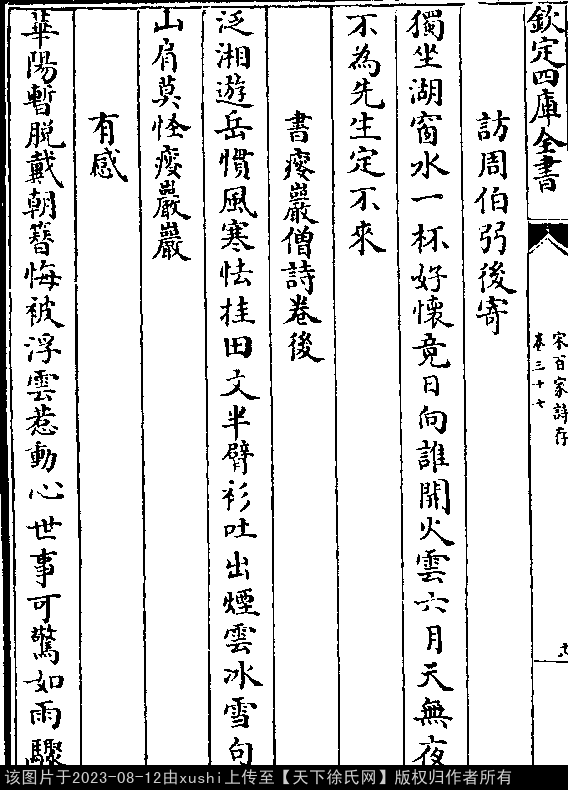 欽定四庫全書
宋百家詩存
卷三十七
訪周伯弜後寄
獨坐湖窗水一杯好懷竟日向誰開火雲六月天無夜
不為先生定不來
書癭巖僧詩卷後
泛湘遊岳慣風寒怯挂田文半臂衫吐出煙雲冰雪句
山肩莫怪癭巖巖
有感
華陽暫脱戴朝簪悔被浮雲惹動心世事可驚如雨驟
该图片于2023-08-12由xushi上传至【天下徐氏网】版权归作者所有